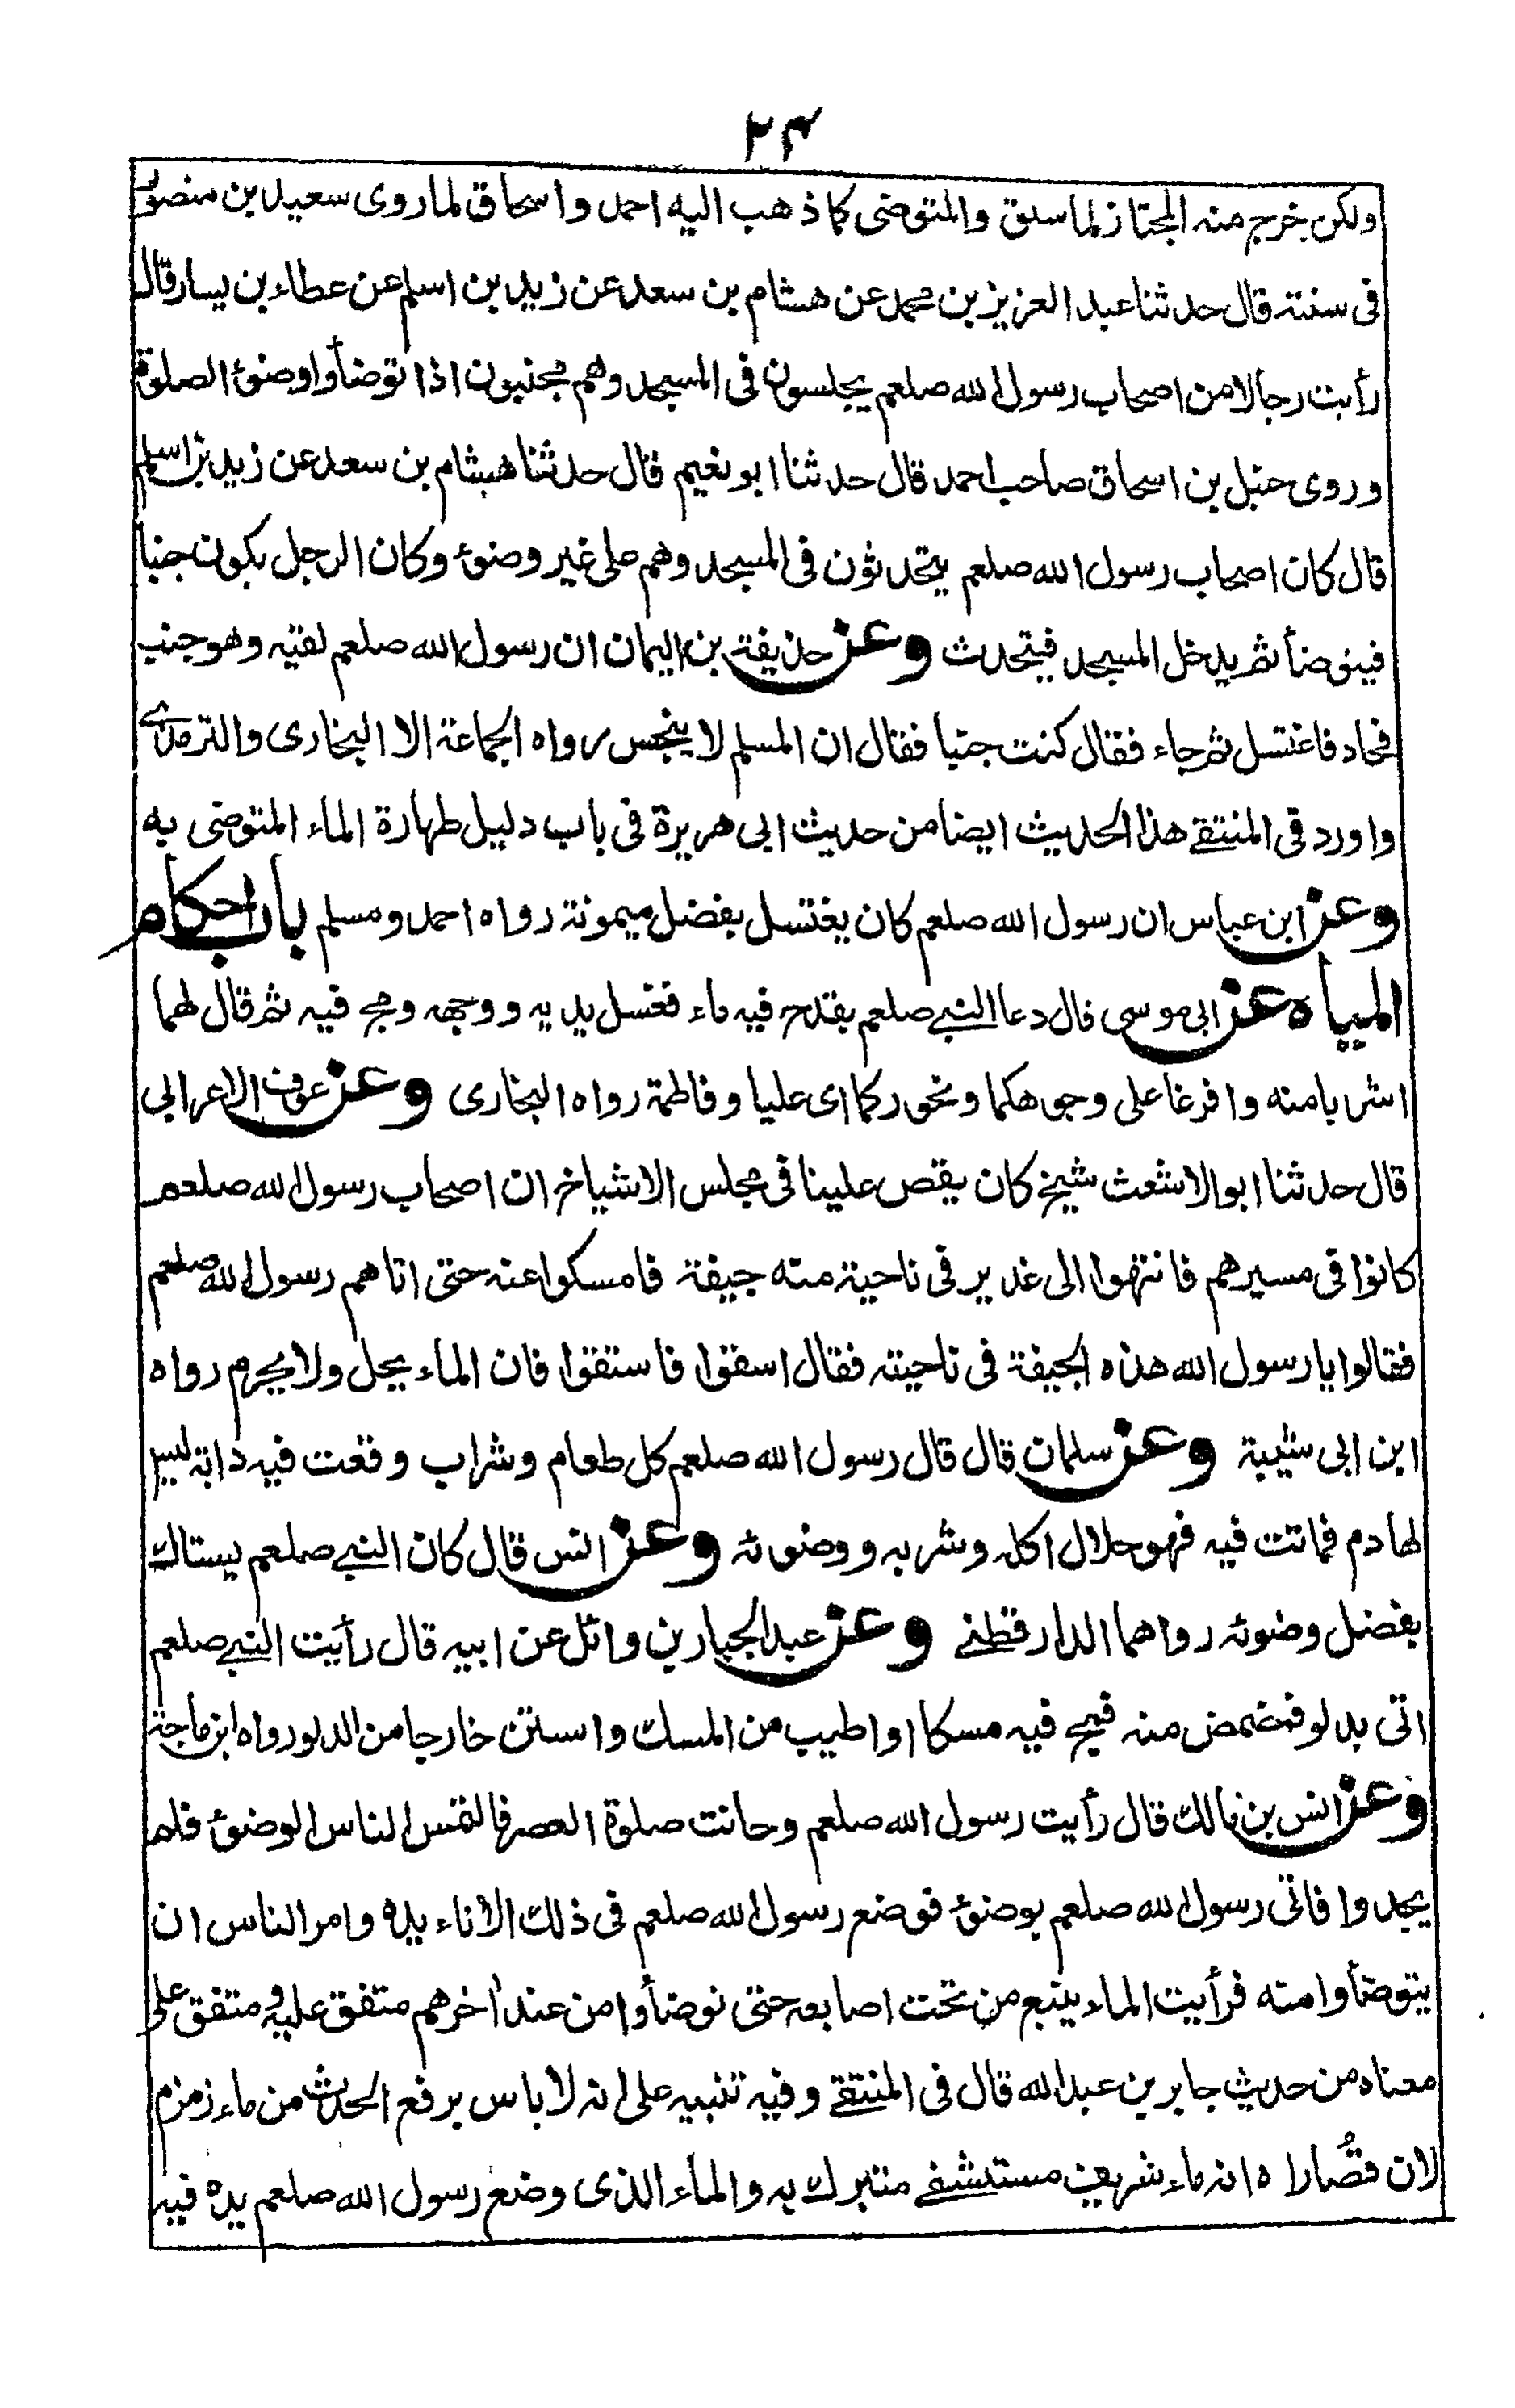 ٢٤
ولكن خرج منه المجتاز لما سبق والمتوضى كما ذهب اليه احمد واسحاق لما روى سعيد بن منصور
فى سننه قال حدثنا عبد العزيز بن محمد عن هشام بن سعد عن زيد بن اسلم عن عطاء بن يسار قال
رأيت رجالا من اصحاب رسول الله صلعم يجلسون فى المسجد وهم مجنبون اذا توضأوا وضوئ الصلوة
وروى حنبل بن اسحاق صاحب احمد قال حدثنا ابو نعيم قال حدثنا هشام بن سعد عن زيد بن اسلم
قال كان اصحاب رسول الله صلعم يتحدثون فى المسجد وهم على غير وضوء وكان الرجل يكون جنبا
فيتوضأ ثم يدخل المسجد فيتحدث وعن حذيفة بن اليمان ان رسول الله صلعم لقيه وهو جنب
فحاد فاغتسل ثم جاء فقال كنت جنبا فقال ان المسلم لا ينجس رواه الجماعة الا البخارى والترمذى
واورد فى المنتقى هذا الحديث ايضا من حديث ابى هريرة فى باب دليل طهارة الماء المتوضى به
وعن ابن عباس ان رسول الله صلعم كان يغتسل بفضل ميمونة رواه احمد ومسلم باب احكام
المياه عن ابى موسى قال دعا النبى صلعم بقدح فيه ماء فغسل يديه ووجهه ومج فيه ثم قال لهما
اشربا منه وافرغا على وجوهكما ونحوركما اى عليا وفاطمة رواه البخارى وعن عوف الاعرابى
قال حدثنا ابو الاشعث شيخ كان يقص علينا فى مجلس الاشياخ ان اصحاب رسول الله صلعم
كانوا فى مسيرهم فانتهوا الى غدير فى ناحية منه جيفة فامسكوا عنه حتى اتاهم رسول الله صلعم
فقالوا يا رسول الله هذه الجيفة فى ناحيته فقال اسقوا فاستقوا فان الماء يحل ولا يحرم رواه
ابن ابى شيبة وعن سلمان قال قال رسول الله صلعم كل طعام وشراب وقعت فيه دابة ليس
لها دم فماتت فيه فهو حلال اكله وشربه ووضوئه وعن انس قال كان النبى صلعم يستاك
بفضل وضوئه رواهما الدارقطنى وعن عبد الجبار بن وائل عن ابيه قال رأيت النبى صلعم
اتى بدلو فمضمض منه فمج فيه مسكا او اطيب من المسك واستنثر خارجا من الدلو رواه ابن ماجة
وعن انس بن مالك قال رأيت رسول الله صلعم وحانت صلوة العصر فالتمس الناس الوضوئ فلم
يجدوا فاتى رسول الله صلعم بوضوئ فوضع رسول الله صلعم فى ذلك الاناء يده وامر الناس ان
يتوضأوا منه فرأيت الماء ينبع من تحت اصابعه حتى توضأوا من عند اخرهم متفق عليه ومتفق على
معناه من حديث جابر بن عبد الله قال فى المنتقى وفيه تنبيه على انه لا باس برفع الحدث من ماء زمزم
لان قصاراه انه ماء شريف مستشفى متبرك به والماء الذى وضع رسول الله صلعم يده فيه